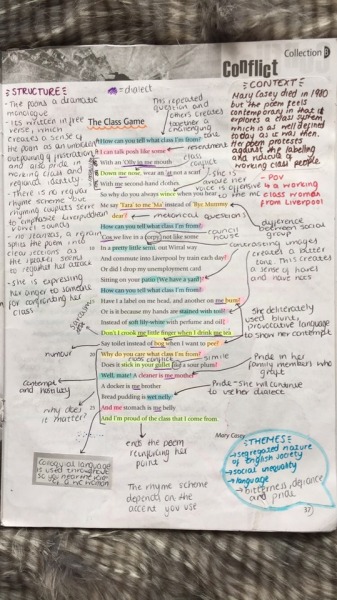 Collection
Conflict
STRUCTURE
= dialect
- The poem's a dramatic
monologue
- Its written in free
verse, which
creates a sense of
the poem as an unbroken
outpouring of frustration
and also pride in
working class and
regional identity
- There is no regular
rhyme scheme but
rhyming couplets serve
to emphasise Liverpudlian
vowel sounds
- no stanzas, a refrain
splits the poem into
clear sections as
the speaker seems
to
her attack
- she is expressing
her anger to someone
for confronting her
class
This repeated
question and
others creates
together a
challenging
tone
The Class Game
How can you tell what class I'm from?
I can talk posh like some
With an 'Olly in me mouth
Down me nose, wear an 'at not a scarf
With me second-hand clothes.
So why do you always wince when you hear
Me say 'Tara' to me 'Ma' instead of 'Bye Mummy
dear'?
How can you tell what class I'm from?
'Cos we live in a corpy, not like some
10 In a pretty little semi, out Wirral way
And commute into Liverpool by train each day?
Or did I drop my unemployment card
Sitting on your patio (We have a yard)?
How can you tell what class I'm from?
15 Have I a label on me head, and another on me bum?
Or is it because my hands are stained with toil?
Instead of soft lily-white with perfume and oil?
Don't I crook me little finger when I drink me tea
Say toilet instead of bog when I want to pee?
20 Why do you care what class I'm from?
Does it stick in your gullet like a sour plum?
Well, mate! A cleaner is me mother
A docker is me brother
Bread pudding is wet nelly
25 And me stomach is me belly
And I'm proud of the class that I come from.
Mary Casey
CONTEXT
Mary Casey died in 1980
but the poem feels
contemporary in that it
explores a class system
which is as well defined
today as it was then.
Her poem protests
against the labelling
and ridicule of
working class people.
- POV
is a working
class women
from Liverpool
resentment
class
conflict
she is
offensive to
the mc
rhetorical question
council
house
difference
between social
group
contrasting images
creates a bitter
tone. This creates
a sense of havel
and have nots
She deliberately
used blunt,
provocative language
to show her contempt
simile
class conflict
Pride in her
family members who
graft
Pride - she will continue
to use her dialect
humour
contempt
and hostility
why does
it matter?
Colloquial language
is used throughout
so you hear the voice
of a wc woman
ends the poem
reinforcing her
point
The rhyme scheme
depends on the
accent you use
THEMES
→ segregated nature
of English society
→ social inequality
→ language
→ bitterness, defiance
and pride
37